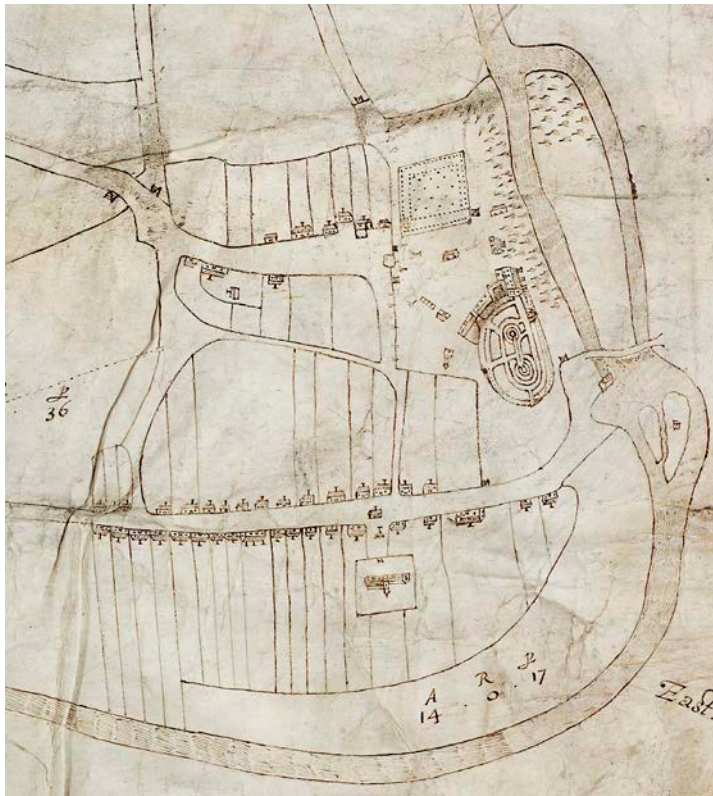 P
36
A R P
14 . 0 . 17
East